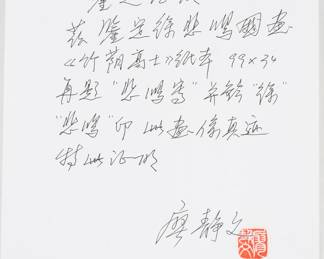 兹鉴定徐悲鸿国画
《竹荫高士》纸本 99×34
再题"悲鸿写"并钤"徐"
"悲鸿"印 此画系真迹
特此证明
廖静文